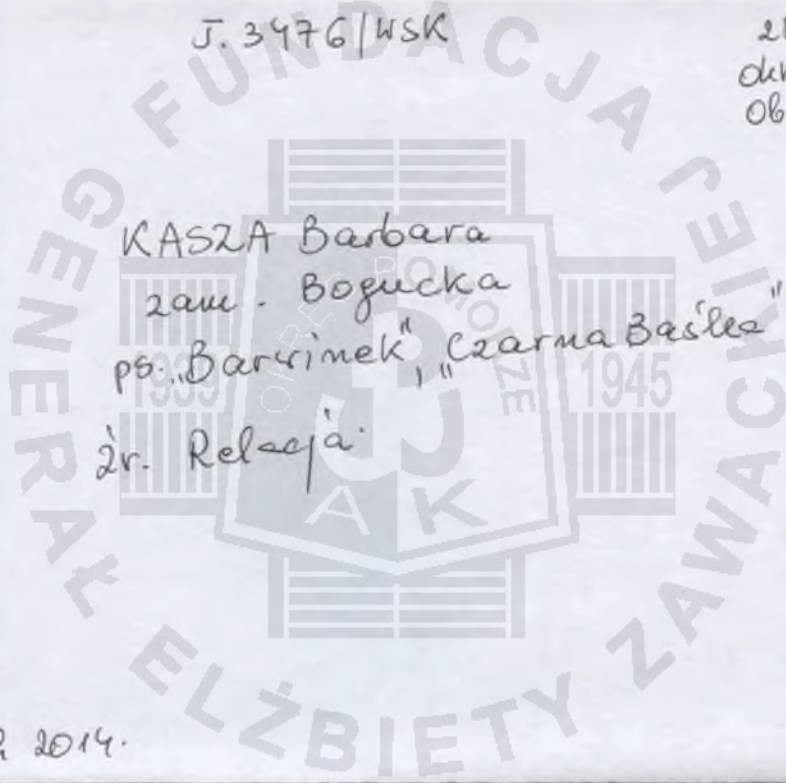 J. 3476/WSK
Ob
KASZA Barbara
zam. Bogucka
ps. „Barwinek”, „Czarna Baśka”
źr. Relacja
2014.
FUNDACJA GENERAŁ ELŻBIETY ZAWACKIEJ
OKRĘG POMORZE
1939
1945
AK